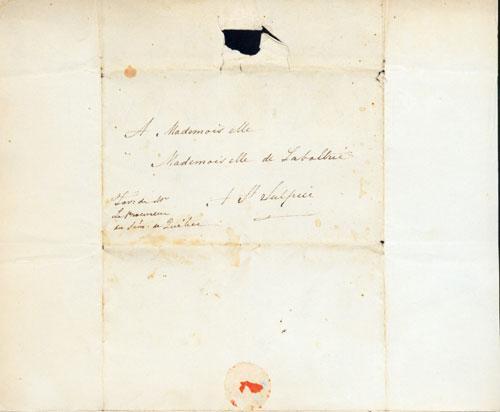 A Mademoiselle
Mademoiselle de Labaltrie
A St Sulpice
Favr de Mr
Le Procureur
du Sém. de Québec